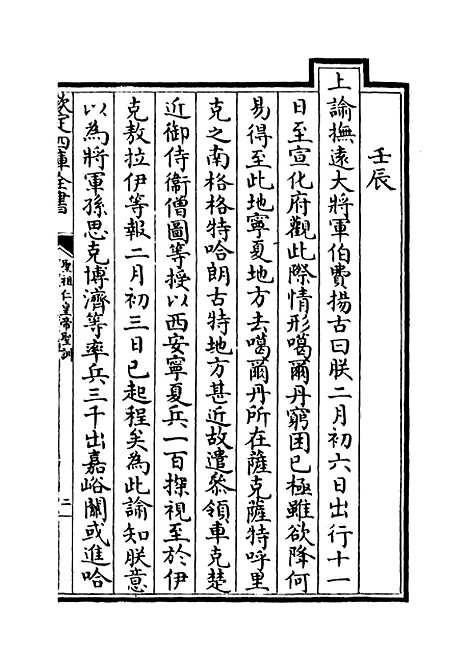 壬辰
上諭撫遠大將軍伯費揚古曰朕二月初六日出行十一
日至宣化府觀此際情形噶爾丹窮困已極雖欲降何
易得至此地寧夏地方去噶爾丹所在薩克薩特呼里
克之南格格特哈朗古特地方甚近故遣叅領車克楚
近御侍衛僧圖等授以西安寧夏兵一百探視至於伊
克敖拉伊等報二月初三日已起程矣為此諭知朕意
以為將軍孫思克博濟等率兵三千出嘉峪關或進哈
欽定四庫全書
聖祖仁皇帝聖訓